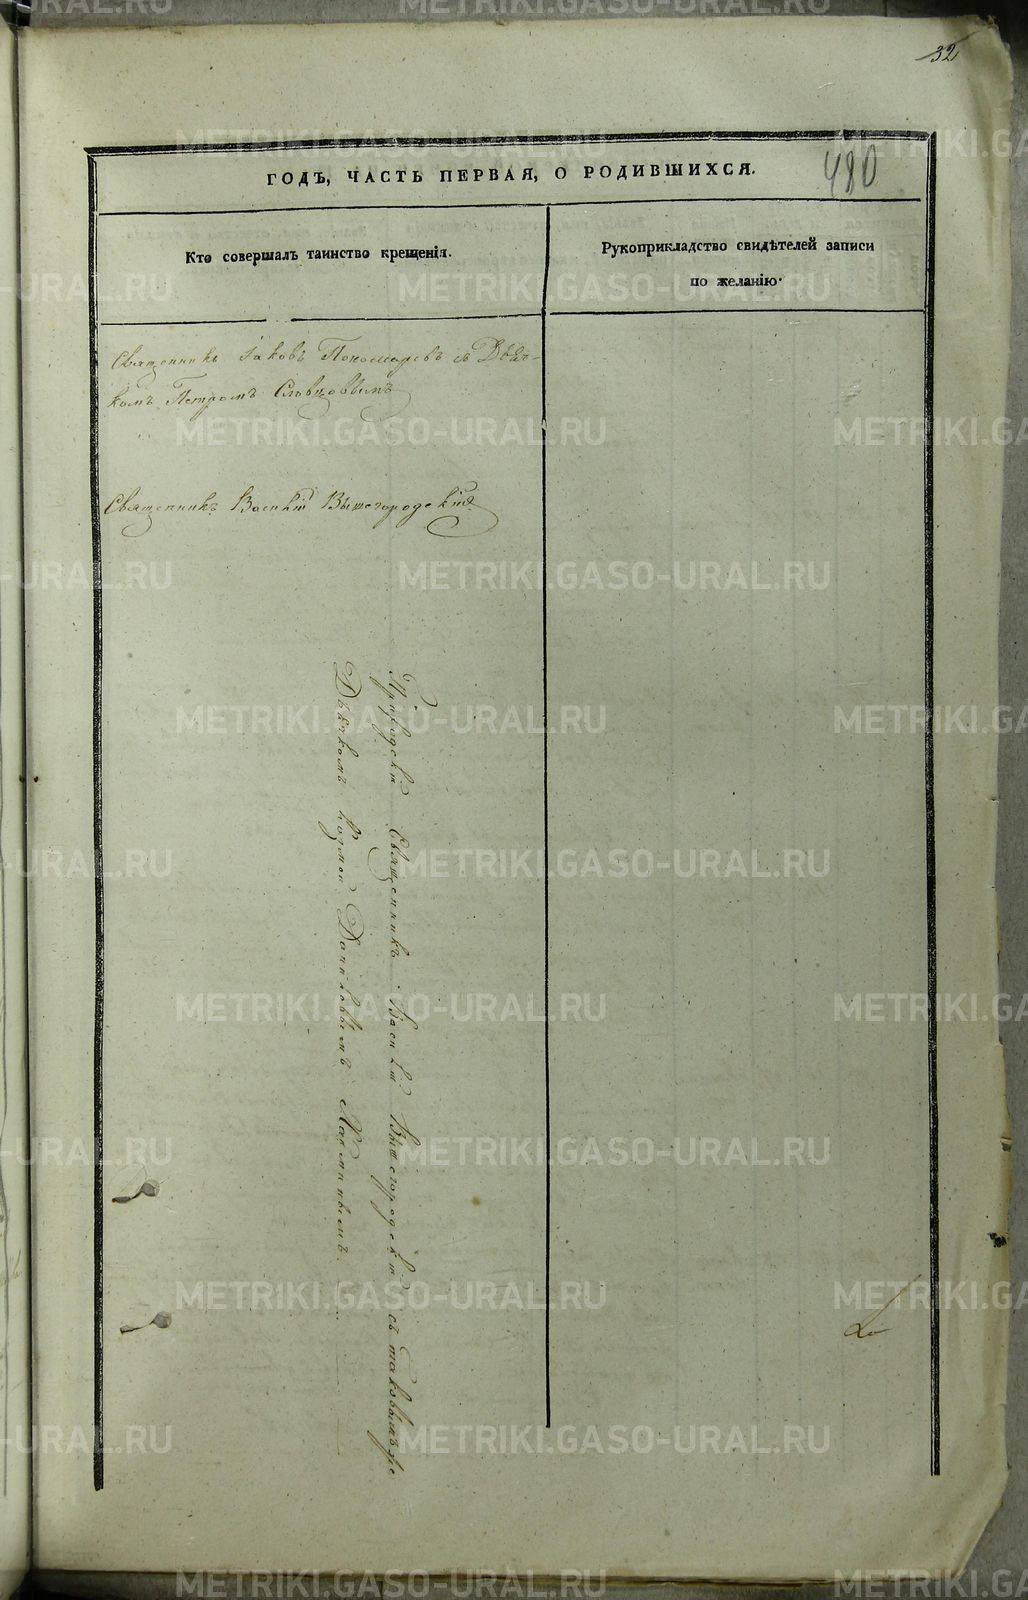 32
480
ГОДЪ, ЧАСТЬ ПЕРВАЯ, О РОДИВШИХСЯ.
Кто совершалъ таинство крещенія.
Рукоприкладство свидѣтелей записи
по желанію.
Священникъ Іаковъ Пономаревъ съ Дьяч-
комъ Петромъ Словцовымъ
Священникъ Василій Вышегородскій
Священникъ Василій Вышегородскій съ таковымъ же
Дьячкомъ Козмою Максиминымъ
METRIKI.GASO-URAL.RU